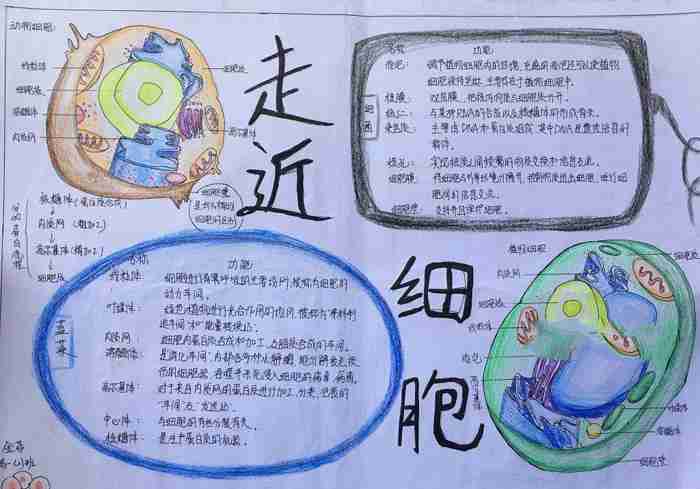 动物细胞:
线粒体
细胞核
溶酶体
内质网
细胞质
高尔基体
细胞膜
核糖体(蛋白质合成)
内质网(粗加工)
高尔基体(精加工)
细胞膜
走近
细胞
名称 功能:
液泡: 调节植物细胞内的环境,充盈的液泡还可以使植物
细胞保持坚挺,主要存在于植物细胞中。
核膜: 双层膜,把核内物质与细胞质分开。
核仁: 与某种RNA的合成以及核糖体的形成有关。
染色质: 主要由DNA和蛋白质组成,其中DNA是遗传信息的
载体。
核孔: 实现核质之间频繁的物质交换和信息交流。
细胞膜: 将细胞与外界环境分隔开,控制物质进出细胞,进行细
胞间的信息交流。
细胞壁: 支持和保护细胞。
名称: 功能:
线粒体: 细胞进行有氧呼吸的主要场所,被称为细胞的
动力车间。
叶绿体: 绿色植物进行光合作用的场所,被称为"养料制
造车间"和"能量转换站。
内质网: 细胞内蛋白质合成和加工,及脂质合成的车间。
溶酶体: 是"消化车间",内部含多种水解酶,能分解衰老、损
伤的细胞器,吞噬并杀死侵入细胞的病毒、病菌。
高尔基体: 对于来自内质网的蛋白质进行加工、分类、包装的
"车间"及"发送站。
中心体: 与细胞的有丝分裂有关。
核糖体: 是生产蛋白质的机器。
植物细胞
内质网
细胞核
线粒体
液泡
高尔基体
叶绿体
溶酶体
细胞壁